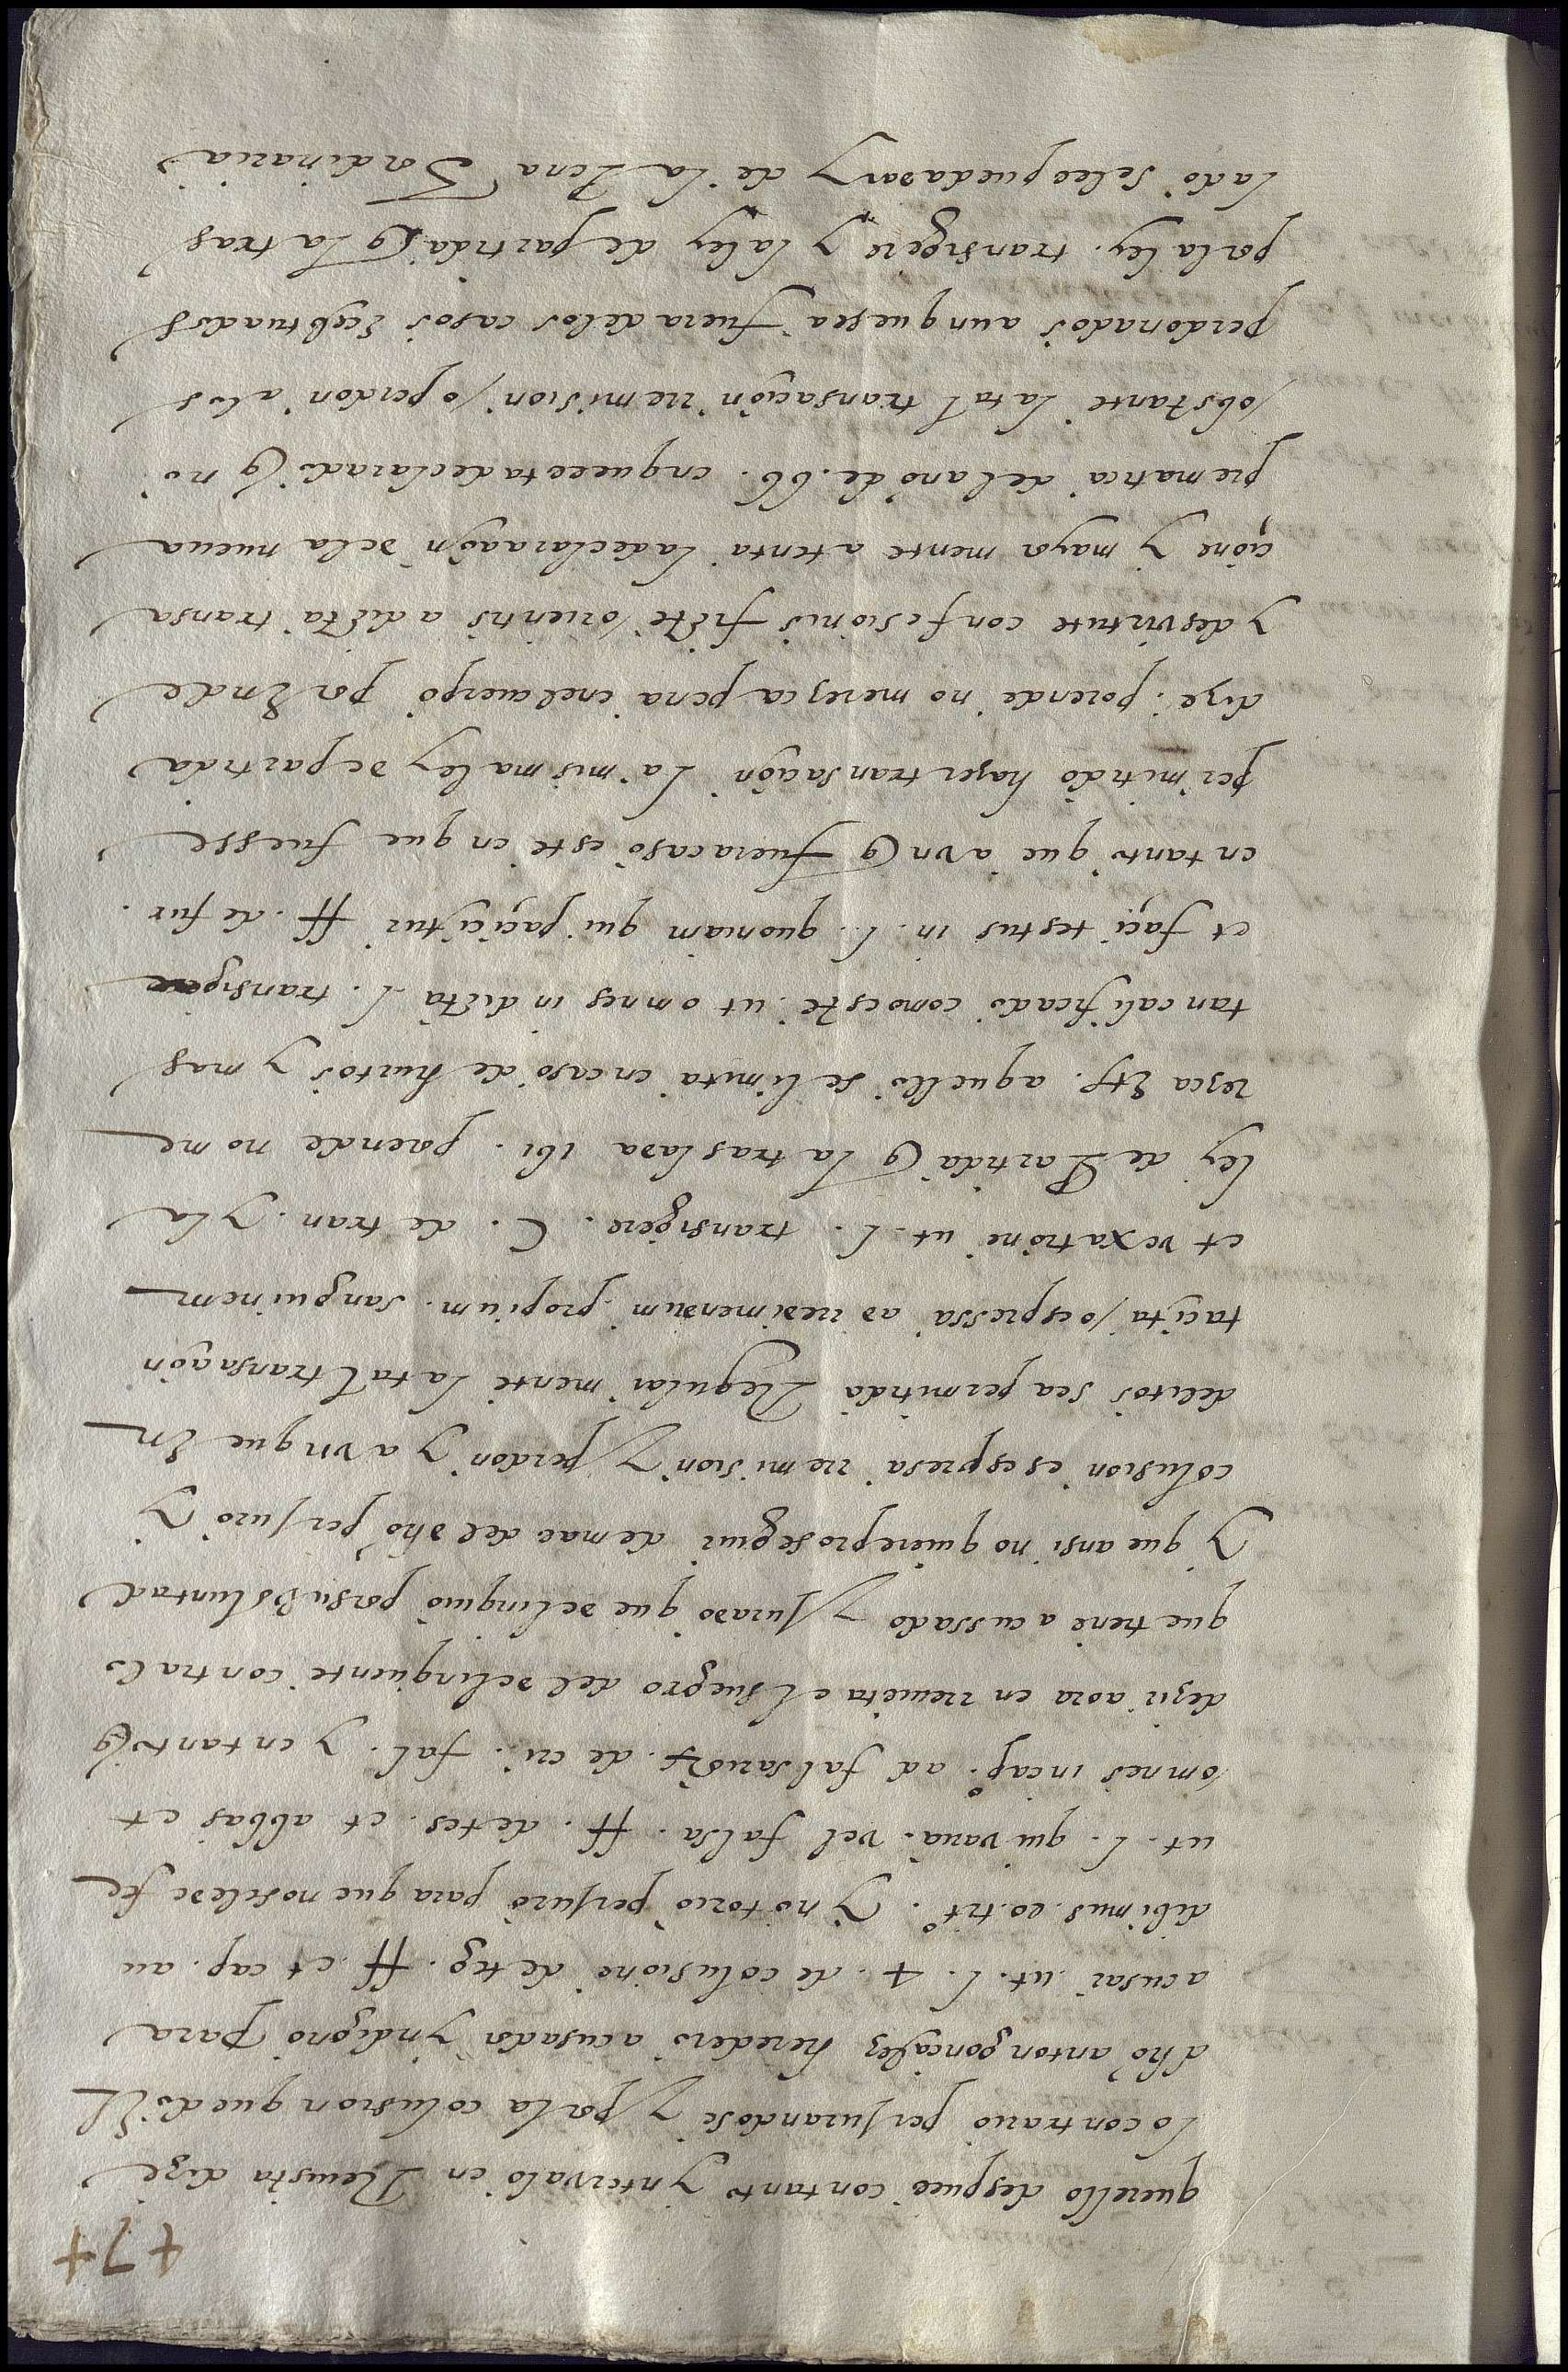 474
querello despues con tanto yntervalo en Revista dize
lo contrario perjurandose y por la colusion quedo El
dho anton gonçalez heredero acusador yndigno para
acusar ut. l. 4. de colusione deteg. ff. et cap. au
dibimus eo. titº. y notorio perjuro para que no se le de fee
ut. l. qui vana. vel falsa. ff. de tes. et abbas et
omnes in capº. ad falsariorum. de cri. fal. y en tanto q
dezir aora en rrevista el suegro del delinquente contra lo
que tiene acussado y jurado que delinquio por su Voluntad
y que ansi no quiere prosegir demas del dho perjuro y
colusion es espresa rremision y perdon y avnque En
delitos sea permitida Regular mente la tal transaçion
taçita / o espressa ad rredimendum propium sanguinem
et vexatione ut. l. transigere. C. de tran. y la
ley de Partida q la traslada ibi. porende no me
resca Etc. aquello se limita en caso de hurtos y mas
tan calificado como este ut omnes in dicta l. transigere
et façi testus in. l. quoniam qui paçiçitur ff. de fur.
en tanto que avnq fuera caso este en que fuesse
permitido hazer transaçion la misma ley de partida
dize: porende no meresca pena en el cuerpo por Ende
y des virtute confesionis ficte orientis a dicta transa
çione y mayor mente atenta la declaraçion de la nueua
prematica del año de .66. en que esta declarado q no
/obstante la tal transaçion rremision / o perdon a los
perdonados aunque sea fuera de los casos Eçebtuados
por la ley. transigere y la ley de partida q la tras
lado se les pueda dar y de la Pena Hordinaria